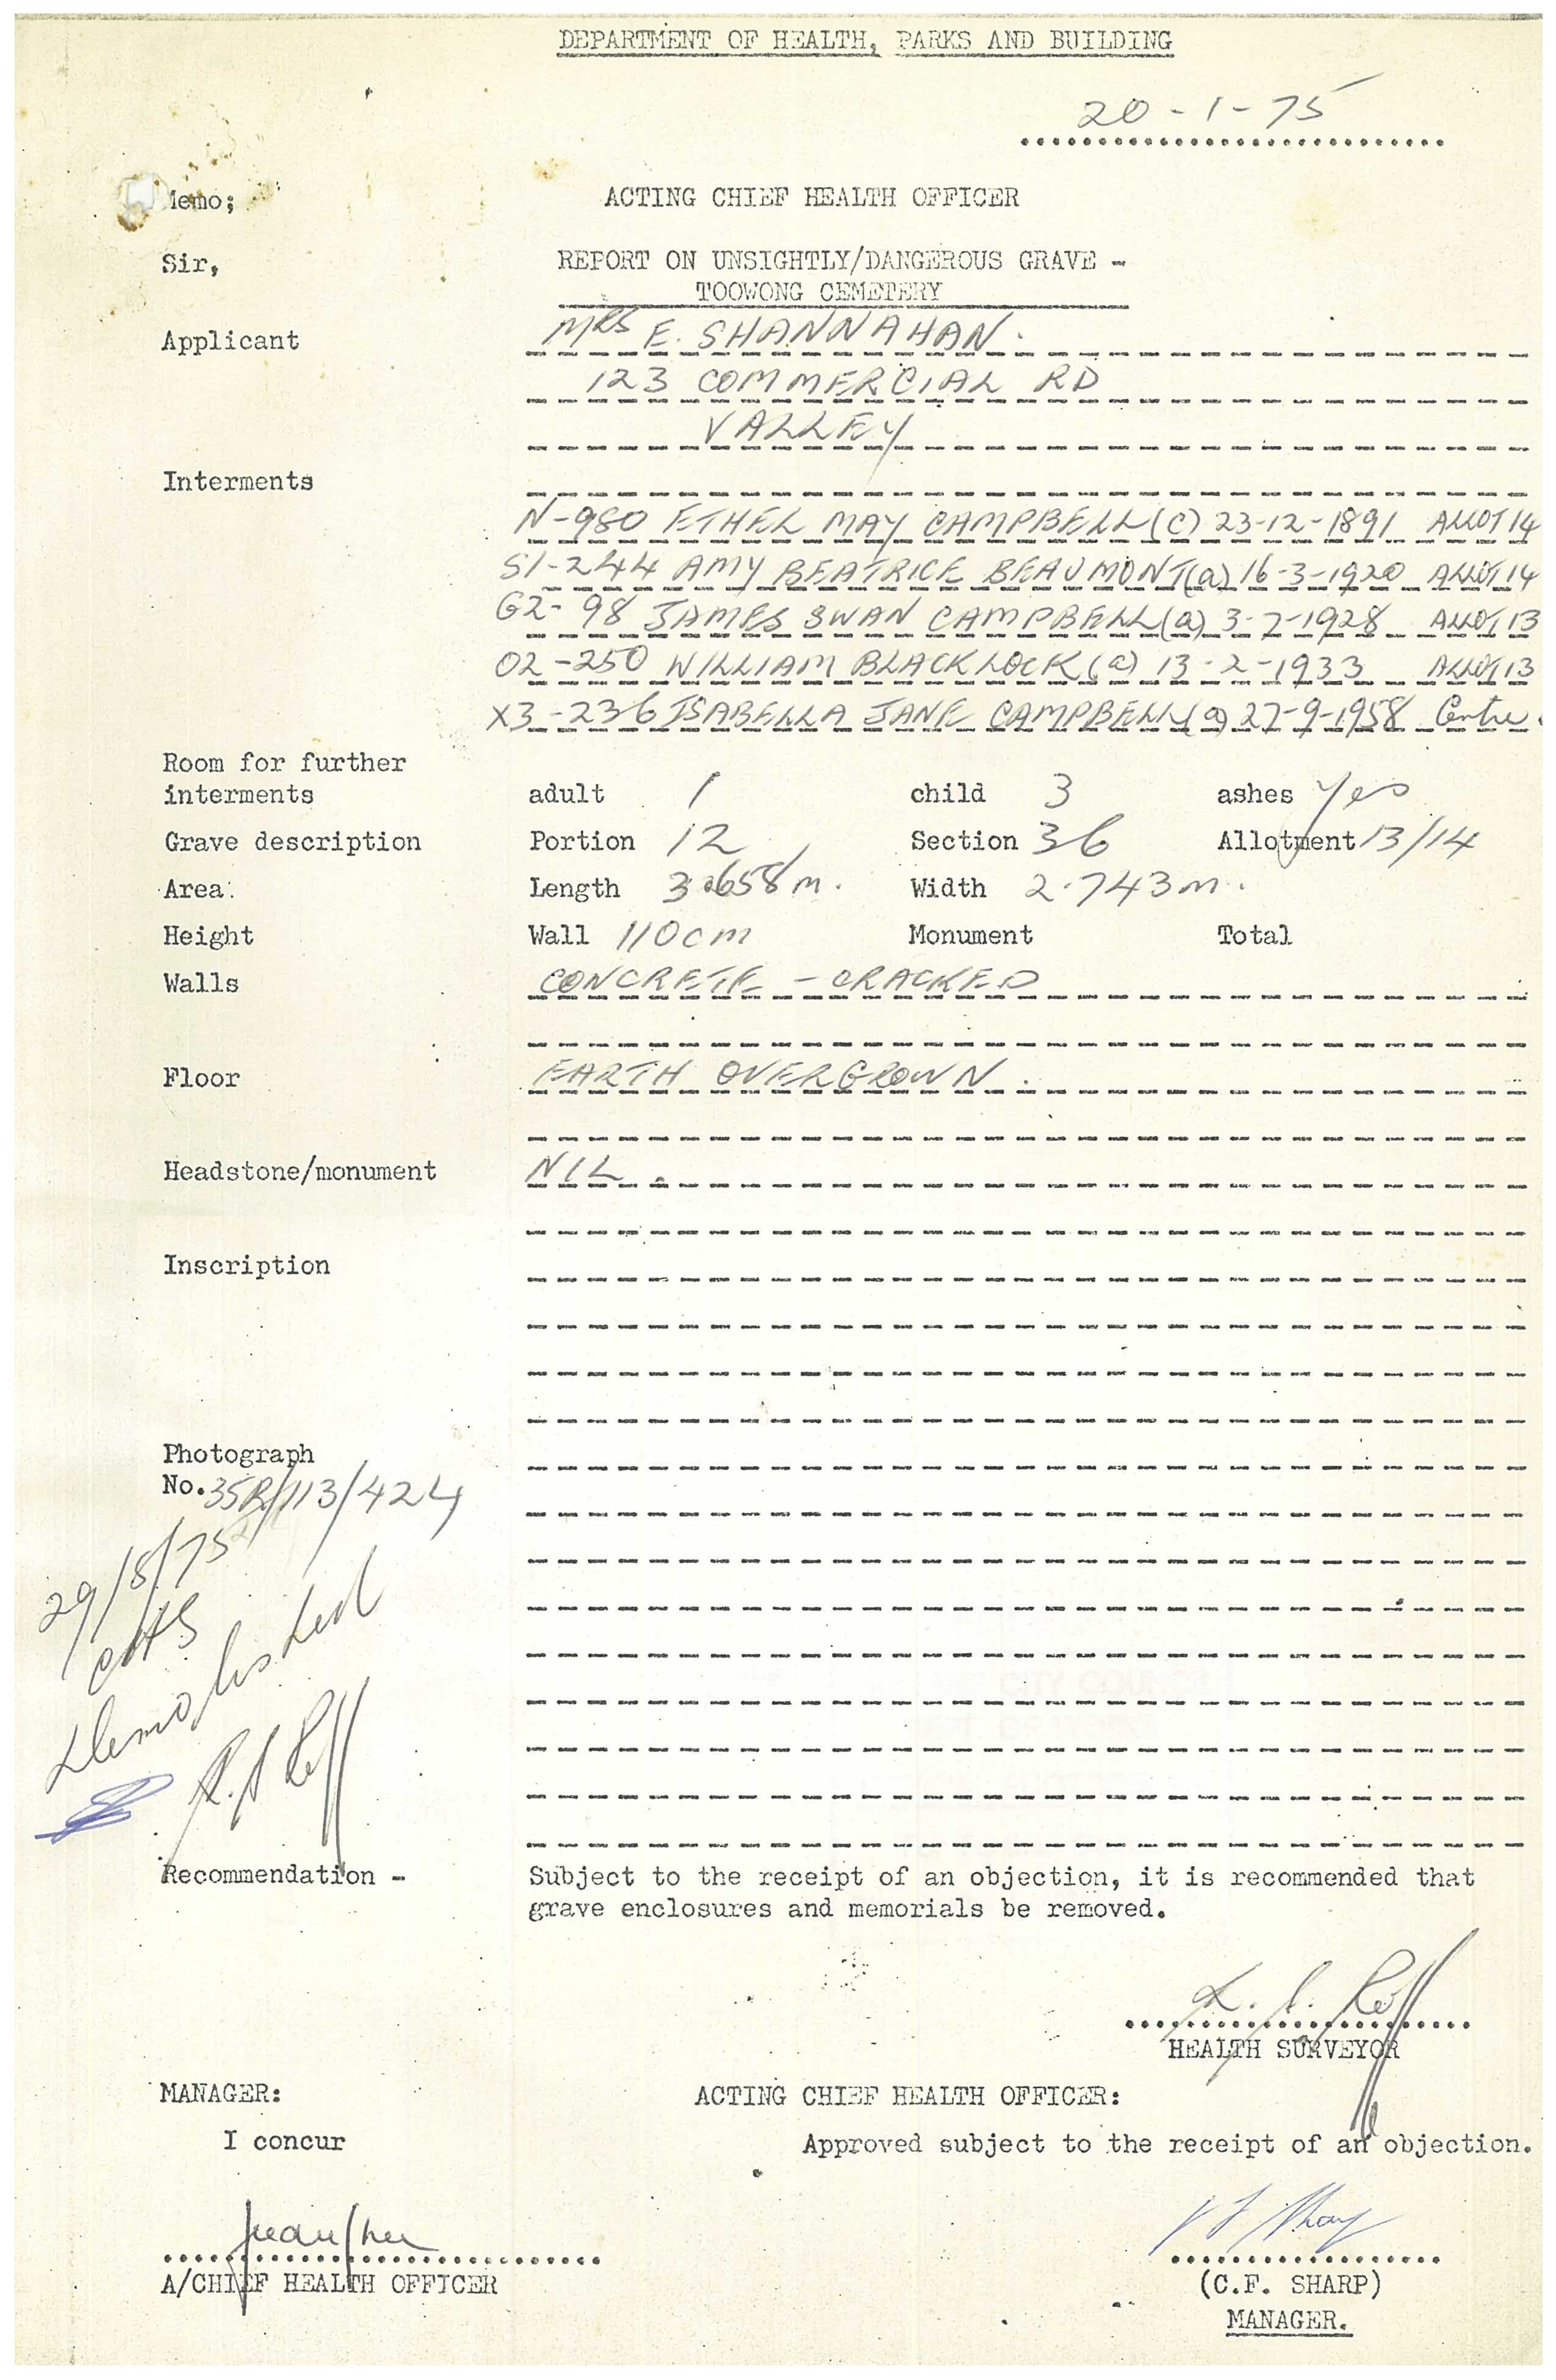 DEPARTMENT OF HEALTH, PARKS AND BUILDING
20-1-75
Memo; ACTING CHIEF HEALTH OFFICER
Sir, REPORT ON UNSIGHTLY/DANGEROUS GRAVE -
TOOWONG CEMETERY
Applicant MRS E. SHANNAHAN.
123 COMMERCIAL RD
VALLEY
Interments
N-980 ETHEL MAY CAMPBELL (C) 23-12-1891 ALLOT 14
S1-244 AMY BEATRICE BEAUMONT (a) 16-3-1920 ALLOT 14
G2-98 JAMES SWAN CAMPBELL (a) 3-7-1928 ALLOT 13
O2-250 WILLIAM BLACKLOCK (a) 13-2-1933 ALLOT 13
X3-236 ISABELLA JANE CAMPBELL (a) 27-9-1958 Centre.
Room for further
interments adult 1 child 3 ashes yes
Grave description Portion 12 Section 36 Allotment 13/14
Area. Length 3.658 m. Width 2.743 m.
Height Wall 110 cm Monument Total
Walls CONCRETE - CRACKED
Floor EARTH OVERGROWN.
Headstone/monument NIL.
Inscription
Photograph
No. 35R/113/424
29/8/75
CHS
Demolished
Recommendation - Subject to the receipt of an objection, it is recommended that
grave enclosures and memorials be removed.
HEALTH SURVEYOR
MANAGER: ACTING CHIEF HEALTH OFFICER:
I concur Approved subject to the receipt of an objection.
A/CHIEF HEALTH OFFICER (C.F. SHARP)
MANAGER.